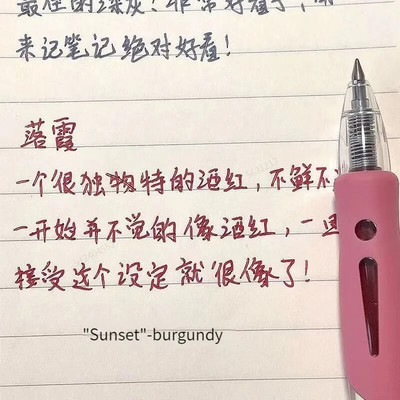 最佳的深灰！非常好看了，用
来记笔记绝对好看！
落霞
一个很独物特的酒红，不鲜不
一开始并不觉的像酒红，一旦
接受这个设定就很像了！
"Sunset"-burgundy